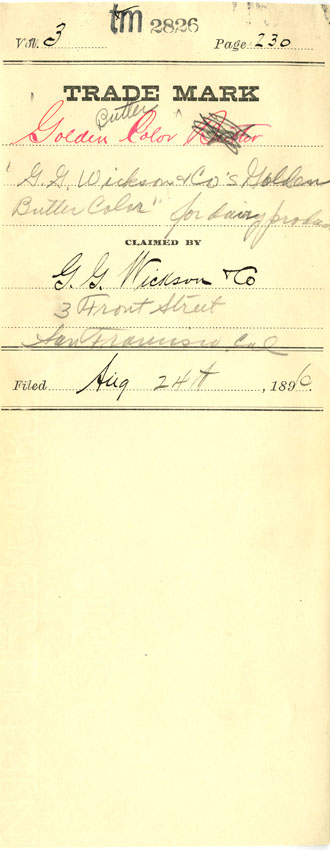 tm 2826
Vol. 3 Page 230
TRADE MARK
Butter
Golden Color
"G. G. Wickson & Co's Golden
Butter Color" for dairy produc
CLAIMED BY
G. G. Wickson & Co
3 Front Street
San Francisco, Cal
Filed Aug 24th, 1896.